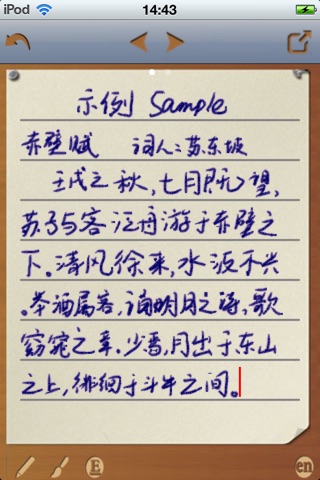 iPod 14:43
示例 Sample
赤壁赋 词人:苏东坡
壬戌之秋,七月既望,
苏子与客泛舟游于赤壁之
下。清风徐来,水波不兴
。举酒属客,诵明月之诗,歌
窈窕之章.少焉,月出于东山
之上,徘徊于斗牛之间。
E en